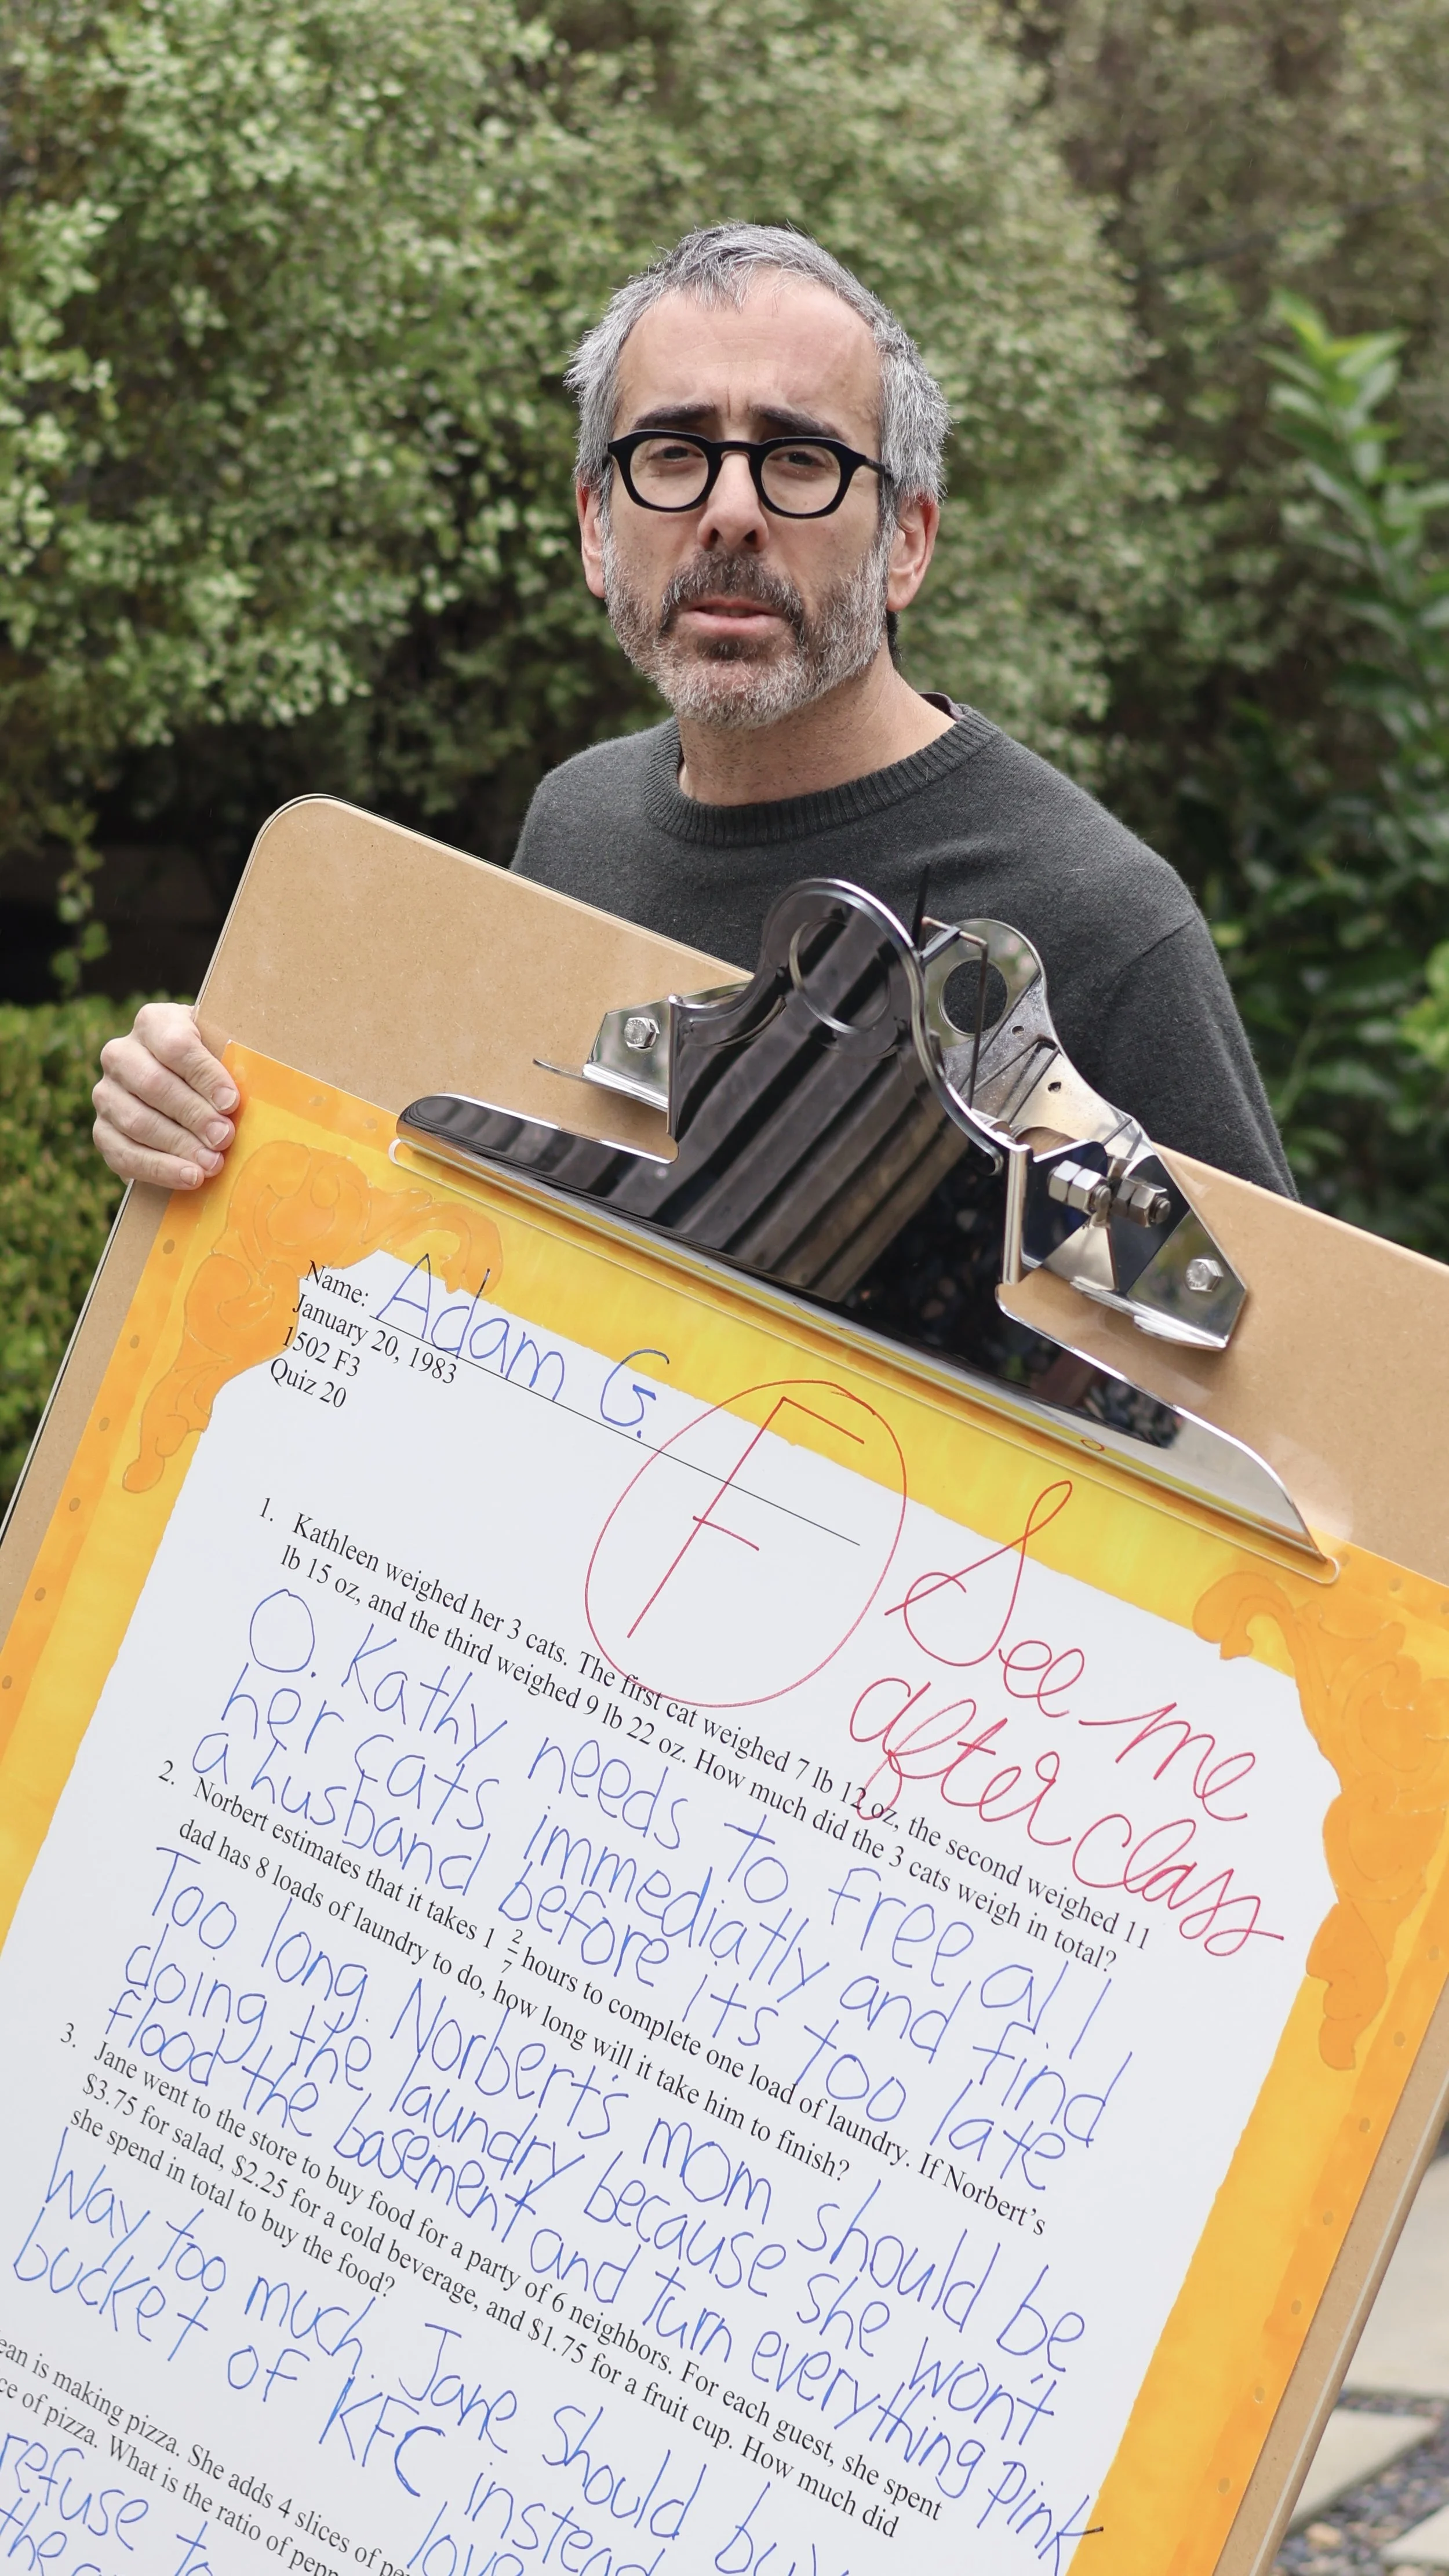 Name: Adam G.
January 20, 1983
1502 F3
Quiz 20
F
See me
after class
1. Kathleen weighed her 3 cats. The first cat weighed 7 lb 12 oz, the second weighed 11
lb 15 oz, and the third weighed 9 lb 22 oz. How much did the 3 cats weigh in total?
O. Kathy needs to free all
her cats immediatly and find
a husband before its too late
2. Norbert estimates that it takes 1 2/7 hours to complete one load of laundry. If Norbert's
dad has 8 loads of laundry to do, how long will it take him to finish?
Too long. Norbert's mom should be
doing the laundry because she won't
flood the basement and turn everything pink
3. Jane went to the store to buy food for a party of 6 neighbors. For each guest, she spent
$3.75 for salad, $2.25 for a cold beverage, and $1.75 for a fruit cup. How much did
she spend in total to buy the food?
Way too much. Jane should buy
bucket of KFC instead
is making pizza. She adds 4 slices of
of pizza. What is the ratio of
refuse to
the